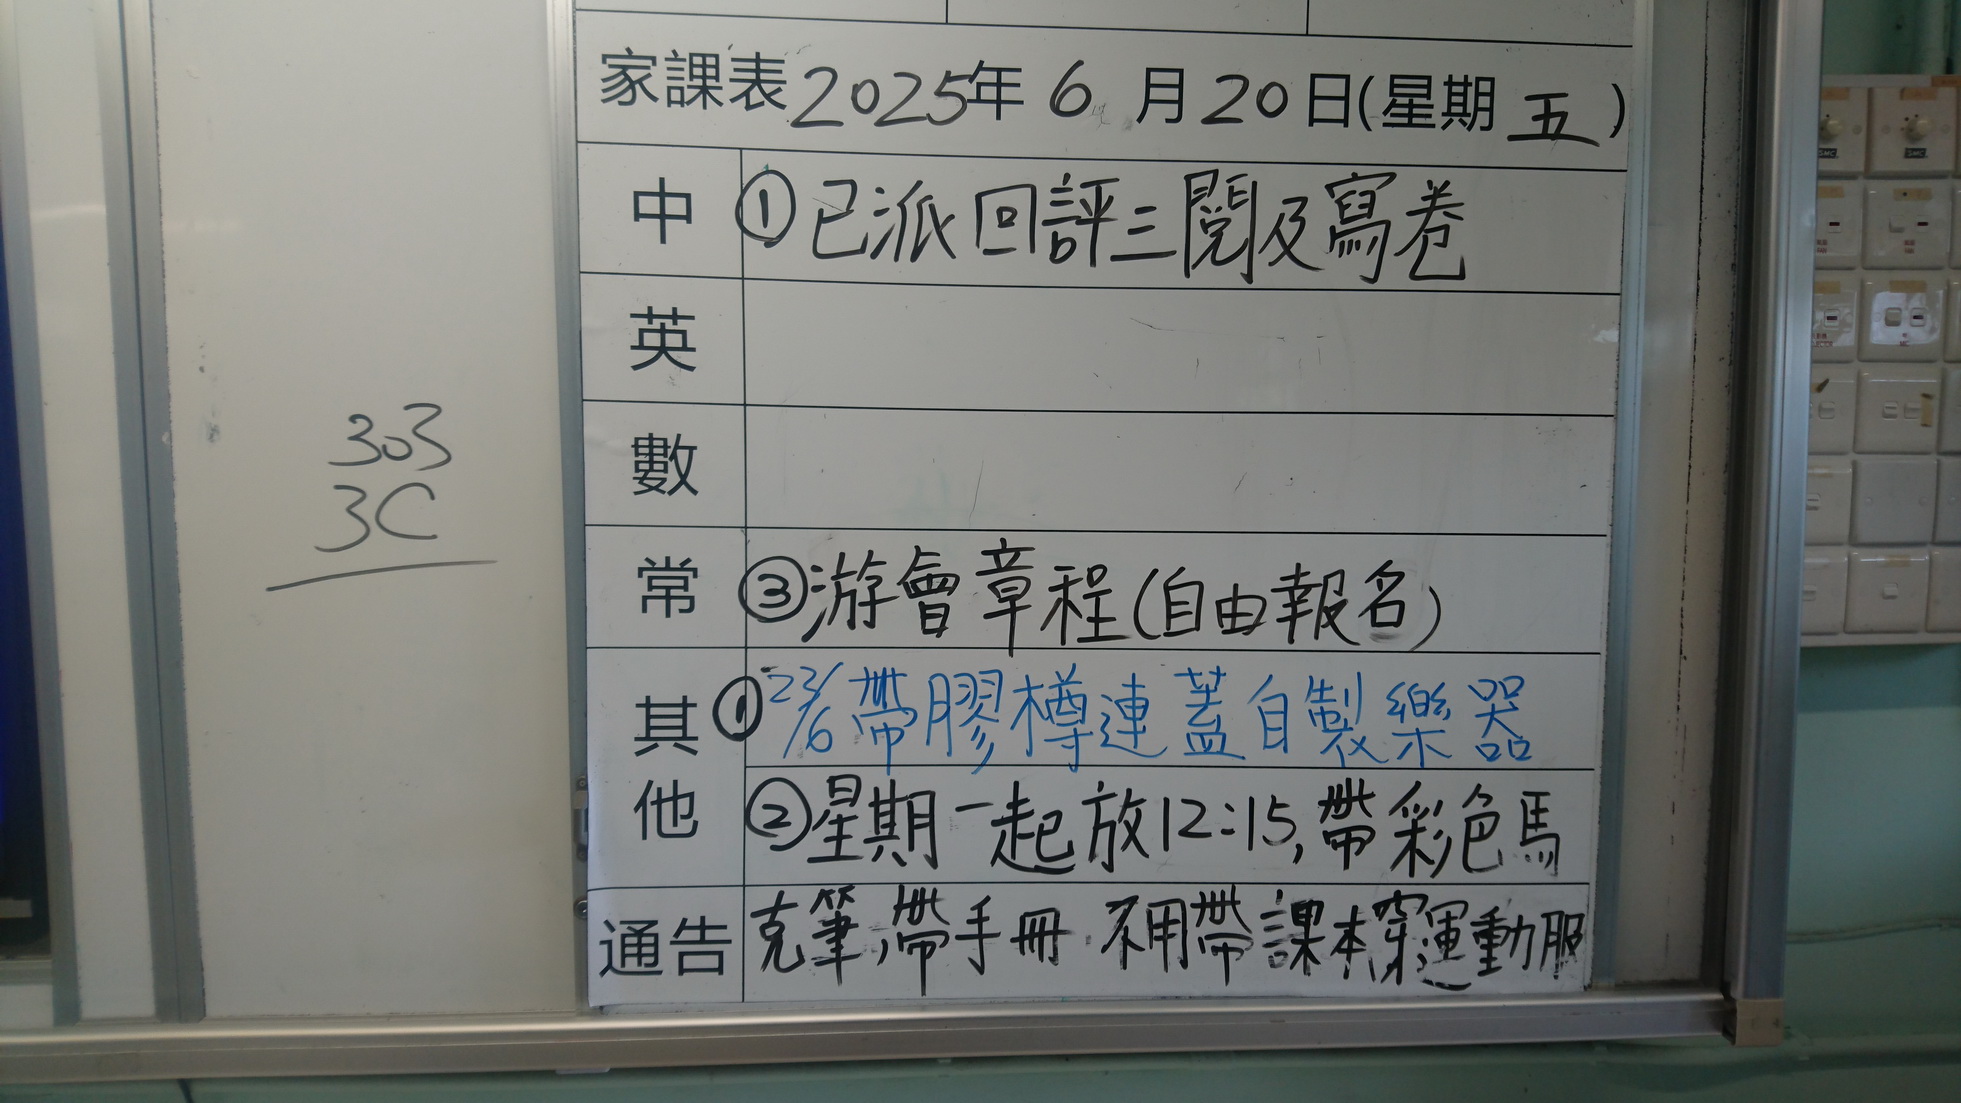 家課表2025年6月20日(星期五)
中 ①已派回評三閱及寫卷
英
數
303
3C
常 ③游會章程(自由報名)
其他 ①23/6帶膠樽連蓋自製樂器
②星期一起放12:15,帶彩色馬
通告 克筆,帶手冊 不用帶課本,穿運動服